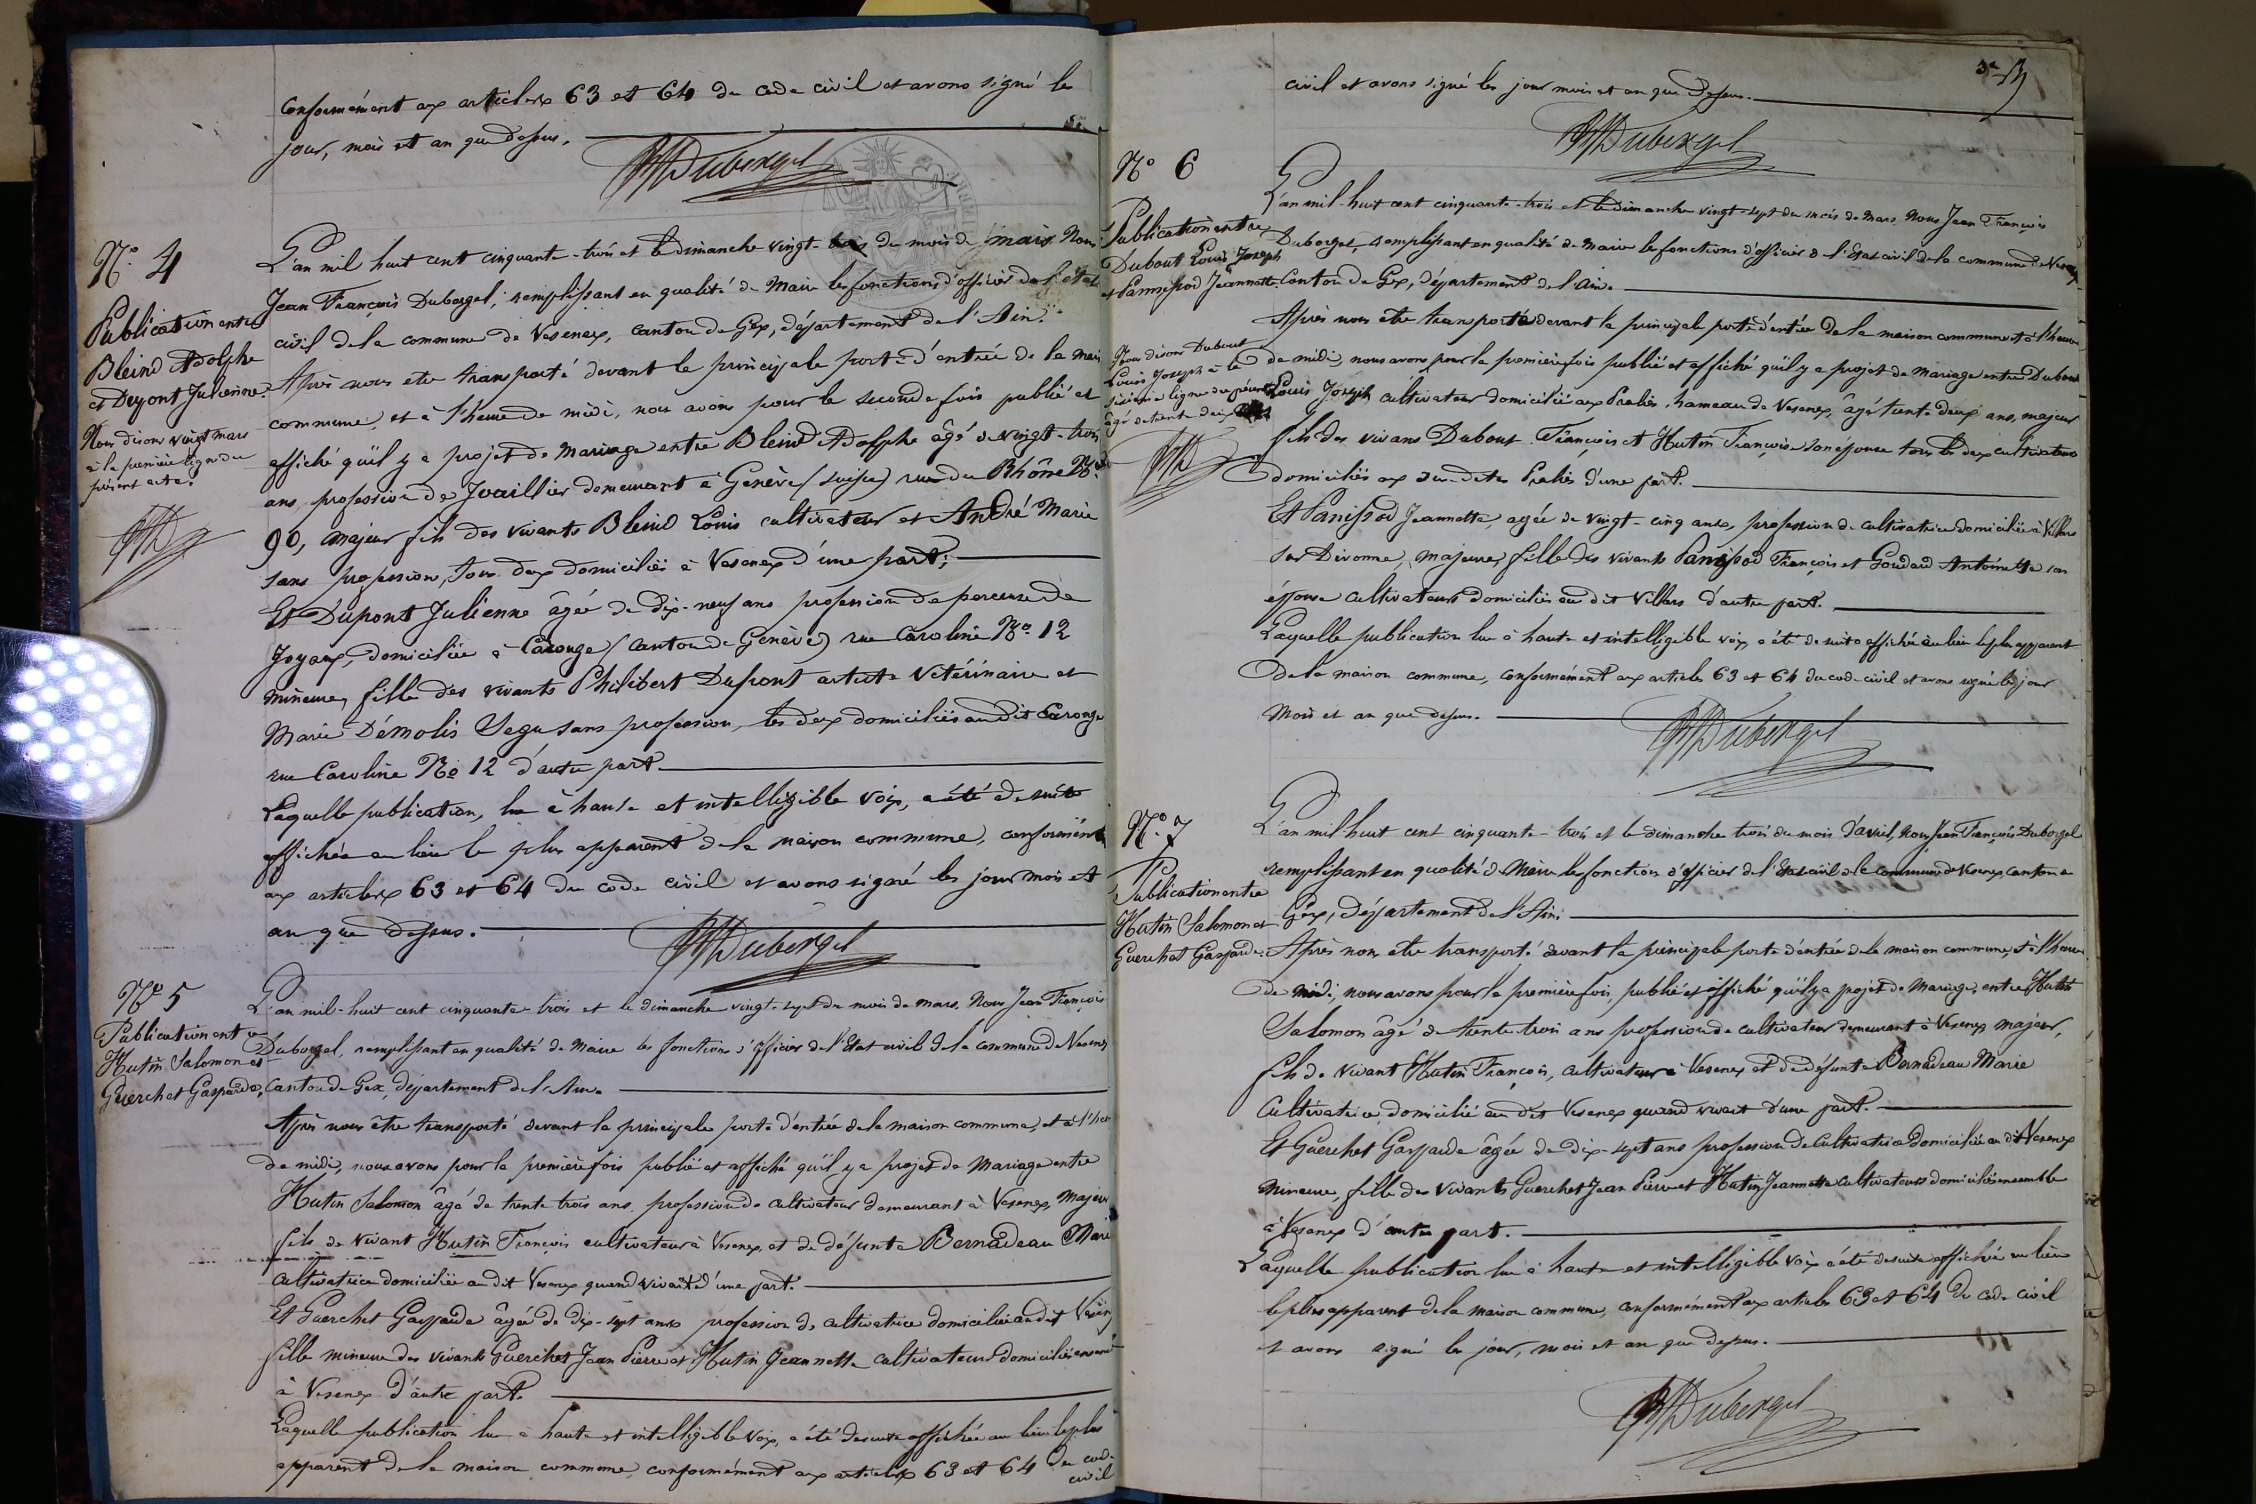 conformément aux articles 63 et 64 du code civil et avons signé les
jour, mois et an que dessus.
Duborgel
N° 4
Publication entre
Bleind Adolphe
et Dupont Julienne.
Nous disons vingt mars
à la première ligne du
présent acte.
L'an mil huit cent cinquante-trois et le dimanche vingt du mois de mars Nous
Jean François Duborgel, remplissant en qualité de Maire les fonctions d'officier de l'état
civil de la commune de Vesenex, canton de Gex, département de l'Ain.
Après nous etre transporté devant la principale porte d'entrée de la maison
commune, et à l'heure de midi, nous avons pour la seconde fois publié et
affiché qu'il y a projet de mariage entre Bleind Adolphe âgé de vingt-trois
ans, profession de Joaillier demeurant à Genève (suisse) rue du Rhône N°
90, majeur fils des vivants Bleind Louis cultivateur et André Marie
sans profession, tous deux domiciliés à Vesenex d'une part;
Et Dupont Julienne âgée de dix-neuf ans profession de perceuse de
Joyaux, domiciliée à Carouge (canton de Genève) rue Caroline N° 12
mineure, fille des vivants Philibert Dupont artiste Vétérinaire et
Marie Démolis sans profession, les deux domiciliés au dit Carouge
rue Caroline N° 12 d'autre part.
Laquelle publication, lue à haute et intelligible voix, a été de suite
affichée au lieu le plus apparent de la maison commune, conformément
aux articles 63 et 64 du code civil et avons signé les jour mois et
an que dessus.
Duborgel
N° 5
Publication entre
Hutin Salomon et
Guerchet Gasparde.
L'an mil-huit cent cinquante-trois et le dimanche vingt-sept du mois de mars, Nous Jean François
Duborgel, remplissant en qualité de Maire les fonctions d'officier de l'Etat civil de la commune de Vesenex
Canton de Gex, département de l'Ain.
Après nous être transporté devant la principale porte d'entrée de la maison commune, et à l'heure
de midi, nous avons pour la première fois publié et affiché qu'il y a projet de Mariage entre
Hutin Salomon âgé de trente trois ans, profession de cultivateur demeurant à Vesenex, Majeur
fils de vivant Hutin François cultivateur à Vesenex, et de défunte Bernadeau Marie
cultivatrice domiciliée au dit Vesenex quand vivait d'une part.
Et Guerchet Gasparde âgée de dix-sept ans profession de cultivatrice domiciliée au dit Vesenex
fille mineure des vivants Guerchet Jean Pierre et Hutin Jeannette cultivateurs domiciliés ensemble
à Vesenex d'autre part.
Laquelle publication lue à haute et intelligible voix, a été de suite affichée au lieu le plus
apparent de la maison commune, conformément aux articles 63 et 64 du code
civil
civil et avons signé les jour mois et an que dessus.
Duborgel
N° 6
Publication entre
Dubout Louis Joseph
et Panissod Jeannette.
Nous disons Dubout
Louis Joseph à la
sixième ligne du présent
âgé de trente deux ans
L'an mil-huit cent cinquante-trois et le dimanche vingt-sept du mois de Mars, Nous Jean François
Duborgel, remplissant en qualité de Maire les fonctions d'officier de l'Etat civil de la commune de Vesenex
Canton de Gex, département de l'Ain.
Après nous etre transporté devant la principale porte d'entrée de la maison commune et à l'heure
de midi, nous avons pour la première fois publié et affiché qu'il y a projet de Mariage entre Dubout
Louis Joseph cultivateur domicilié aux Pralies, hameau de Vesenex, âgé trente deux ans, majeur
fils des vivans Dubout François et Hutin Françoise son épouse tous les deux cultivateurs
domiciliés aux susdites Pralies d'une part.
Et Panissod Jeannette, agée de vingt-cinq ans, profession de cultivatrice domiciliée à Villars
sur Divonne, majeure, fille des vivants Panissod François et Goudard Antoinette son
épouse cultivateurs domiciliés au dit Villars d'autre part.
Laquelle publication lue à haute et intelligible voix, a été de suite affichée au lieu le plus apparent
de la maison commune, conformément aux articles 63 et 64 du code civil et avons signé les jour
Mois et an que dessus.
Duborgel
N° 7
Publication entre
Hutin Salomon et
Guerchet Gasparde.
L'an mil-huit cent cinquante-trois et le dimanche trois du mois d'avril, Nous Jean François Duborgel
remplissant en qualité de Maire les fonction d'officier de l'Etat civil de la commune de Vesenex canton de
Gex, département de l'Ain.
Après nous etre transporté devant la principale porte d'entrée de la maison commune, et à l'heure
de midi, nous avons pour la première fois, publié et affiché qu'il y a projet de Mariage, entre Hutin
Salomon âgé de trente-trois ans profession de cultivateur demeurant à Vesenex majeur,
fils de vivant Hutin François, cultivateur à Vesenex et de défunte Bernadeau Marie
cultivatrice domicilié au dit Vesenex quand vivait d'une part.
Et Guerchet Gasparde âgée de dix-sept ans profession de Cultivatrice domiciliée au dit Vesenex
mineure, fille des vivants Guerchet Jean Pierre et Hutin Jeannette cultivateurs domiciliés ensemble
à Vesenex d'autre part.
Laquelle publication lue à haute et intelligible voix a été de suite affichée au lieu
le plus apparent de la maison commune, conformément aux articles 63 et 64 du code civil
et avons signé les jour, mois et an que dessus.
Duborgel